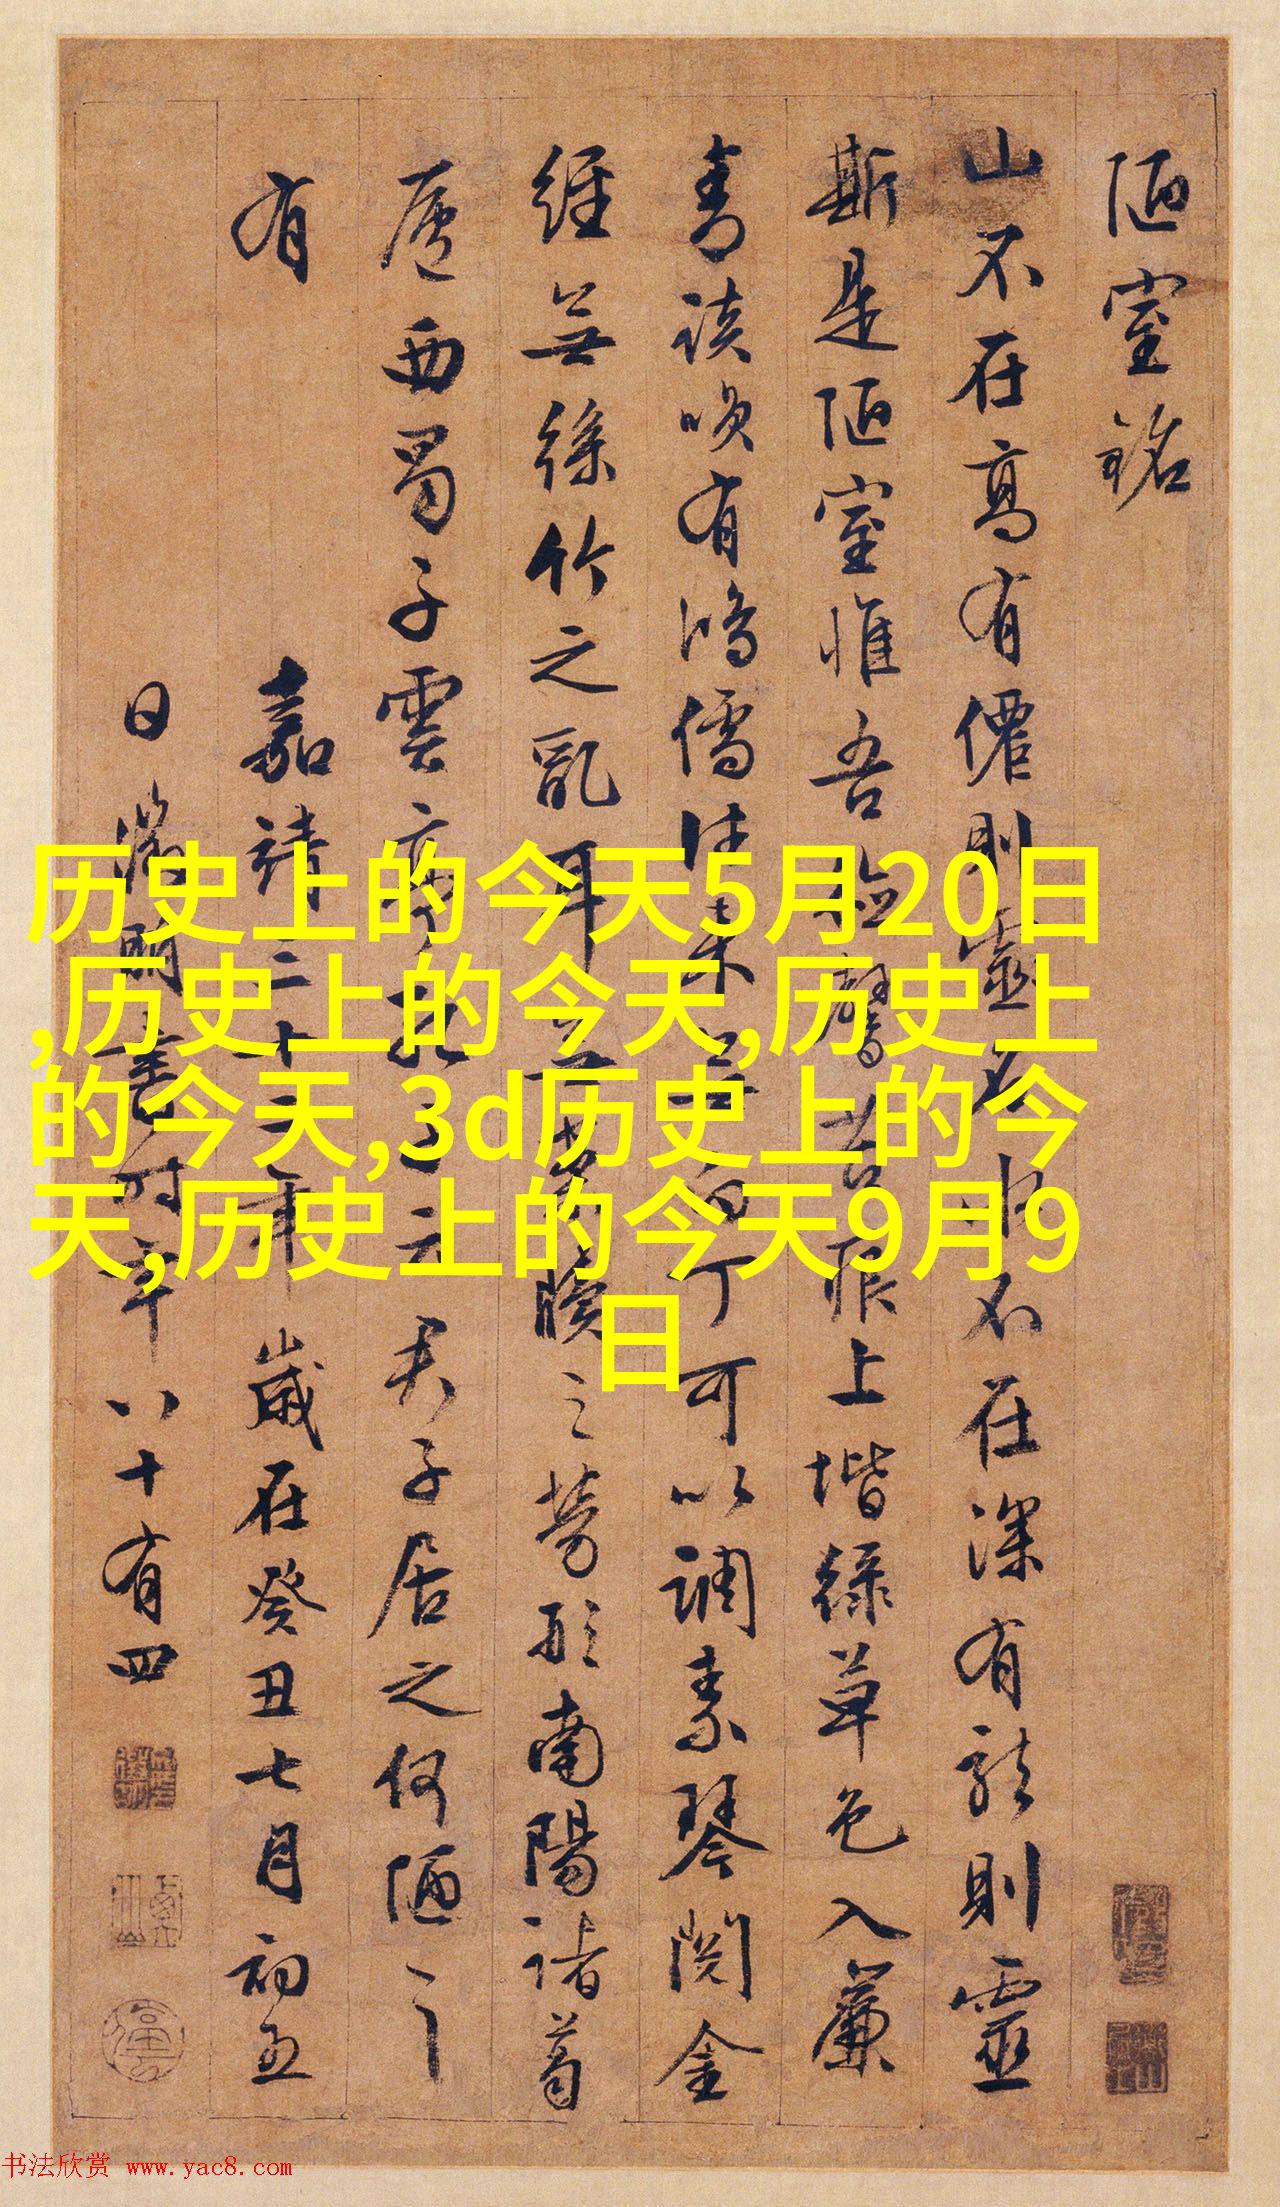 陋室銘
山不在高有僊則靈名水不在深有龍則靈
斯是陋室惟吾德馨苔痕上堦綠草色入簾
青談咲有鴻儒往來無白丁可以調素琴閱金
經無絲竹之亂耳無案牘之勞形南陽諸葛
廬西蜀子雲亭孔子云君子居之何陋之
有
嘉靖三十二年歲在癸丑七月初五
日徵明書時年八十有四
历史上的今天5月20日
,历史上的今天,历史上
的今天,3d历史上的今
天,历史上的今天9月9
日
书法欣赏 www.yac8.com